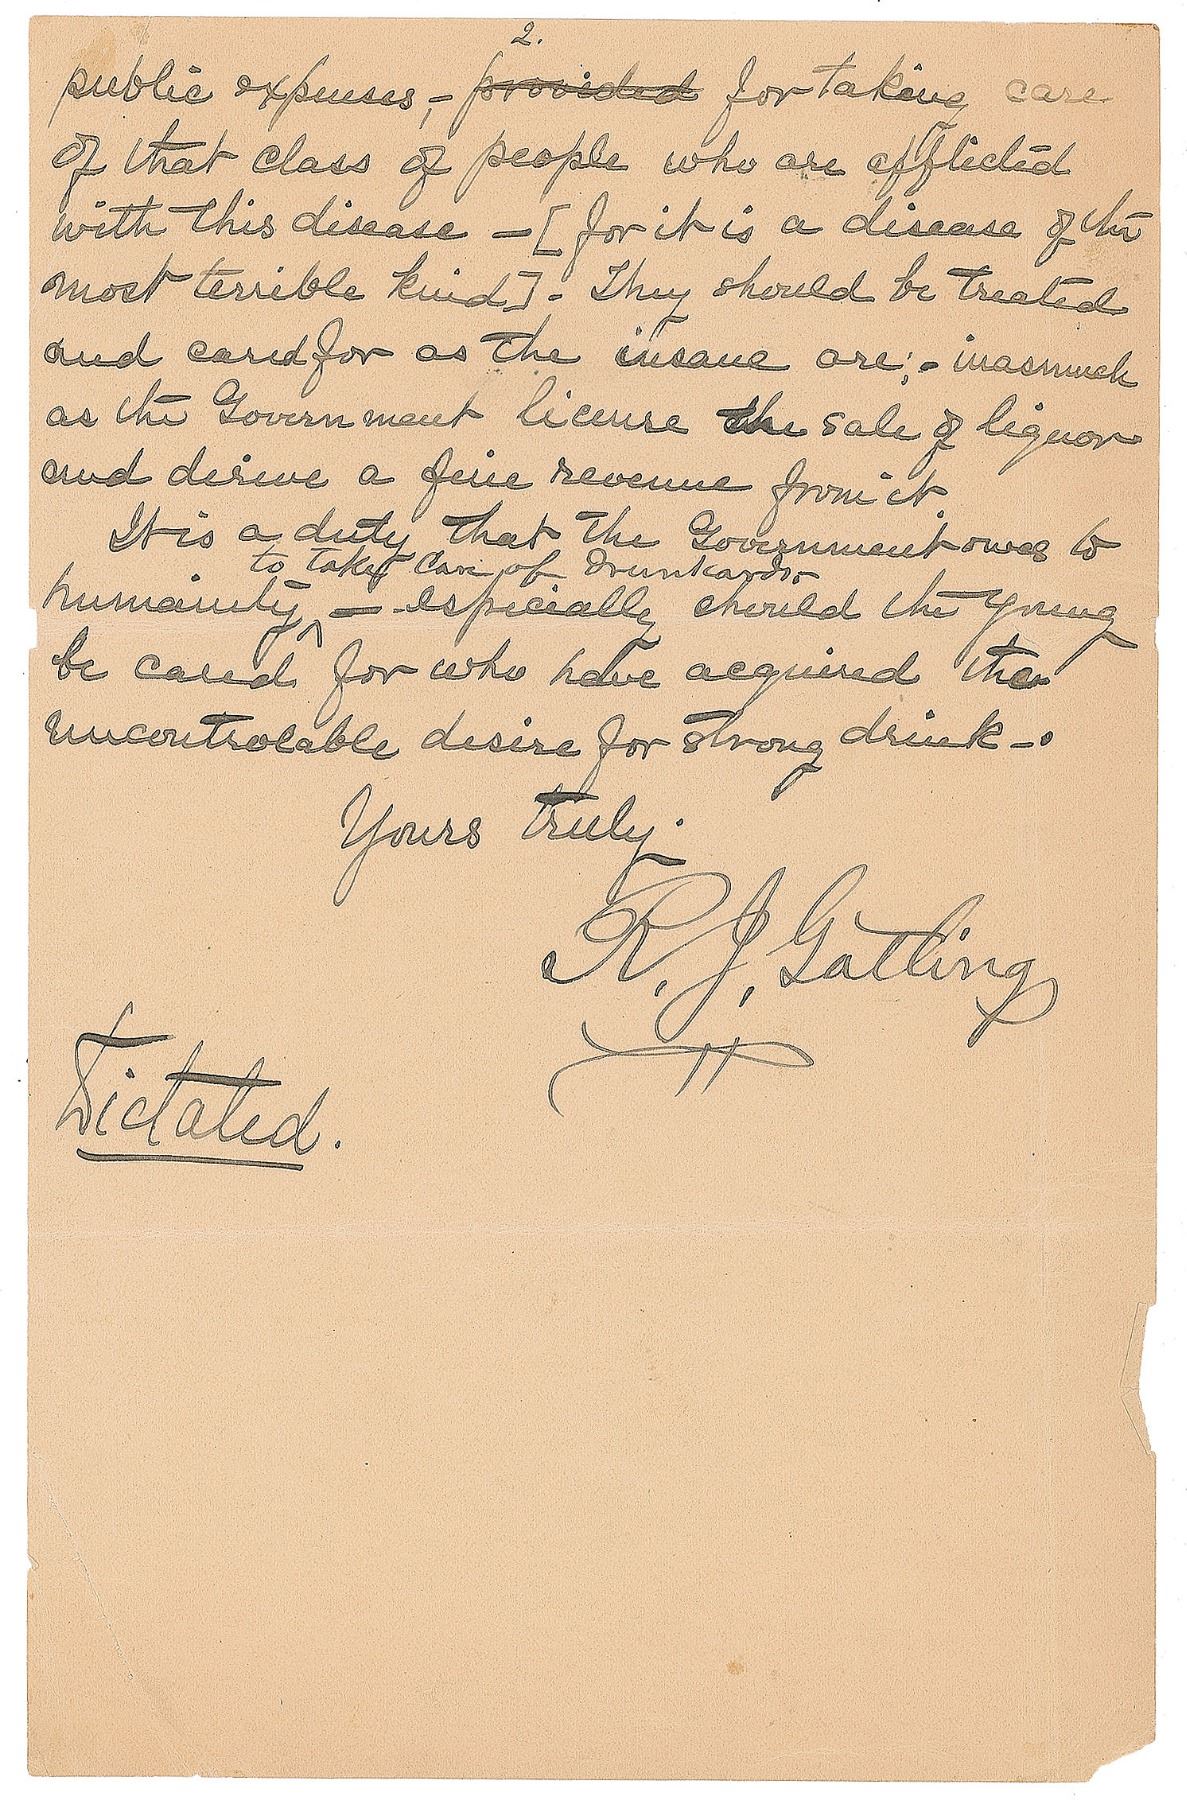 2.
public expenses, - provided for taking care
of that class of people who are afflicted
with this disease - [for it is a disease of the
most terrible kind]. They should be treated
and cared for as the insane are; - inasmuch
as the Government license the sale of liquor
and derive a fine revenue from it.
It is a duty that the Government owes to
to take care of drunkards -
humanity ^ - especially should the young
be cared for who have acquired the
uncontrolable desire for strong drink -.
Yours truly.
R. J. Gatling
Dictated.